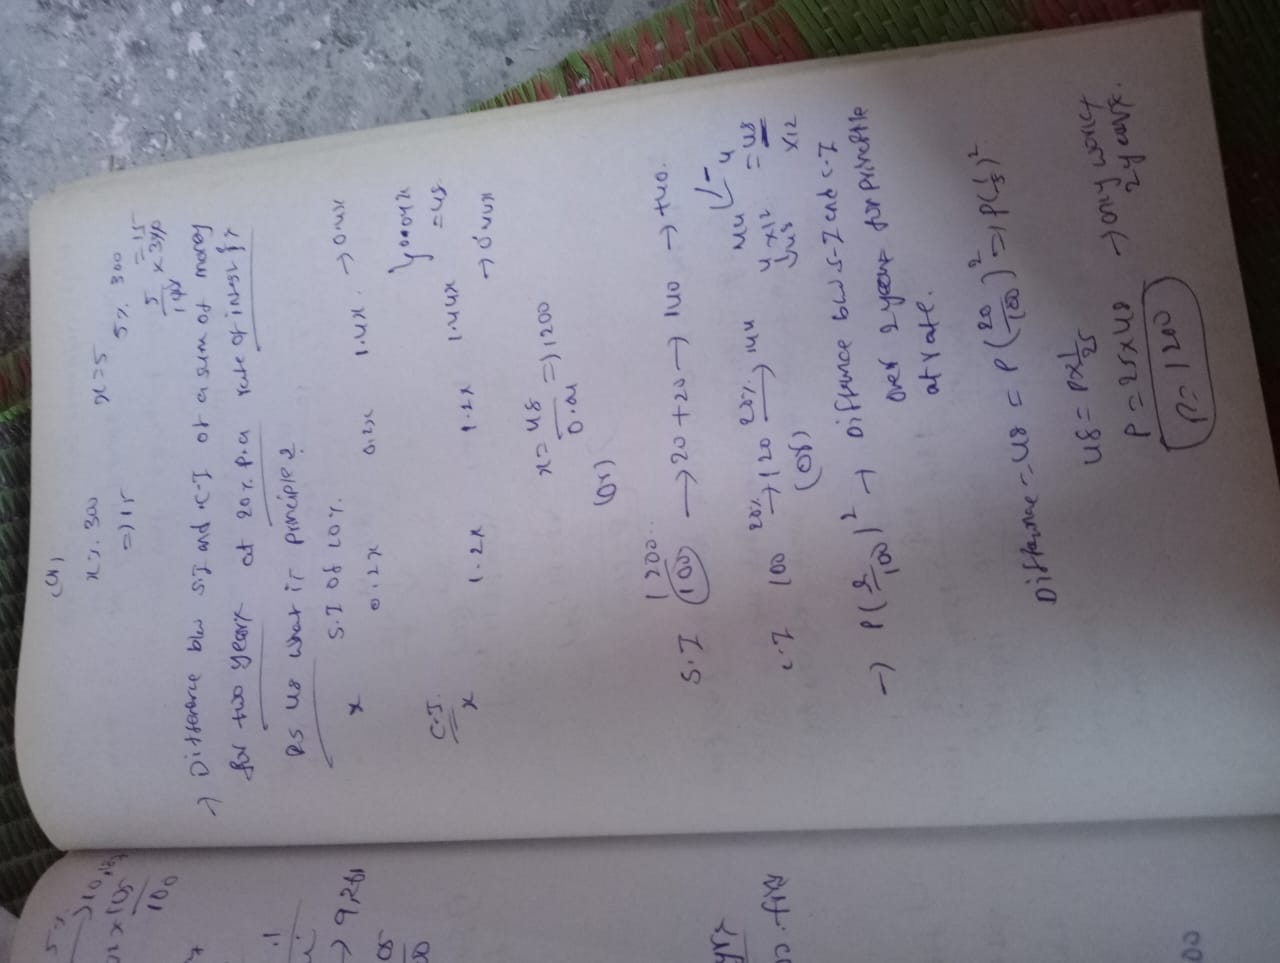 (or)
x% 300 x=5 5% 300
=> 15 5/100 x 300 = 15
→ Difference b/w S.I and C.I of a sum of money
for two years at 20% p.a rate of
RS 48 what it principle?
S.I of 20%.
x 0.2x 0.2x 1.4x → 0.4x
} 0.04x = 48
C.I.
x 1.2x 1.2x 1.44x → 0.44x
x = 48/0.04 => 1200
(or)
1200
S.I 100 → 20 + 20 → 140 → +40.
C.I 100 20% → 120 20% → 144 44 - 4
4 x12 = 48 x12
48
(or)
→ P(r/100)² → Difference b/w S.I and C.I
over 2 years for principle
at rate.
Difference = 48 = P(20/100)² => P(1/5)²
48 = P x 1/25
P = 25 x 48 → only works 2 years.
P = 1200
5%
100
→ 9261
yrs
00